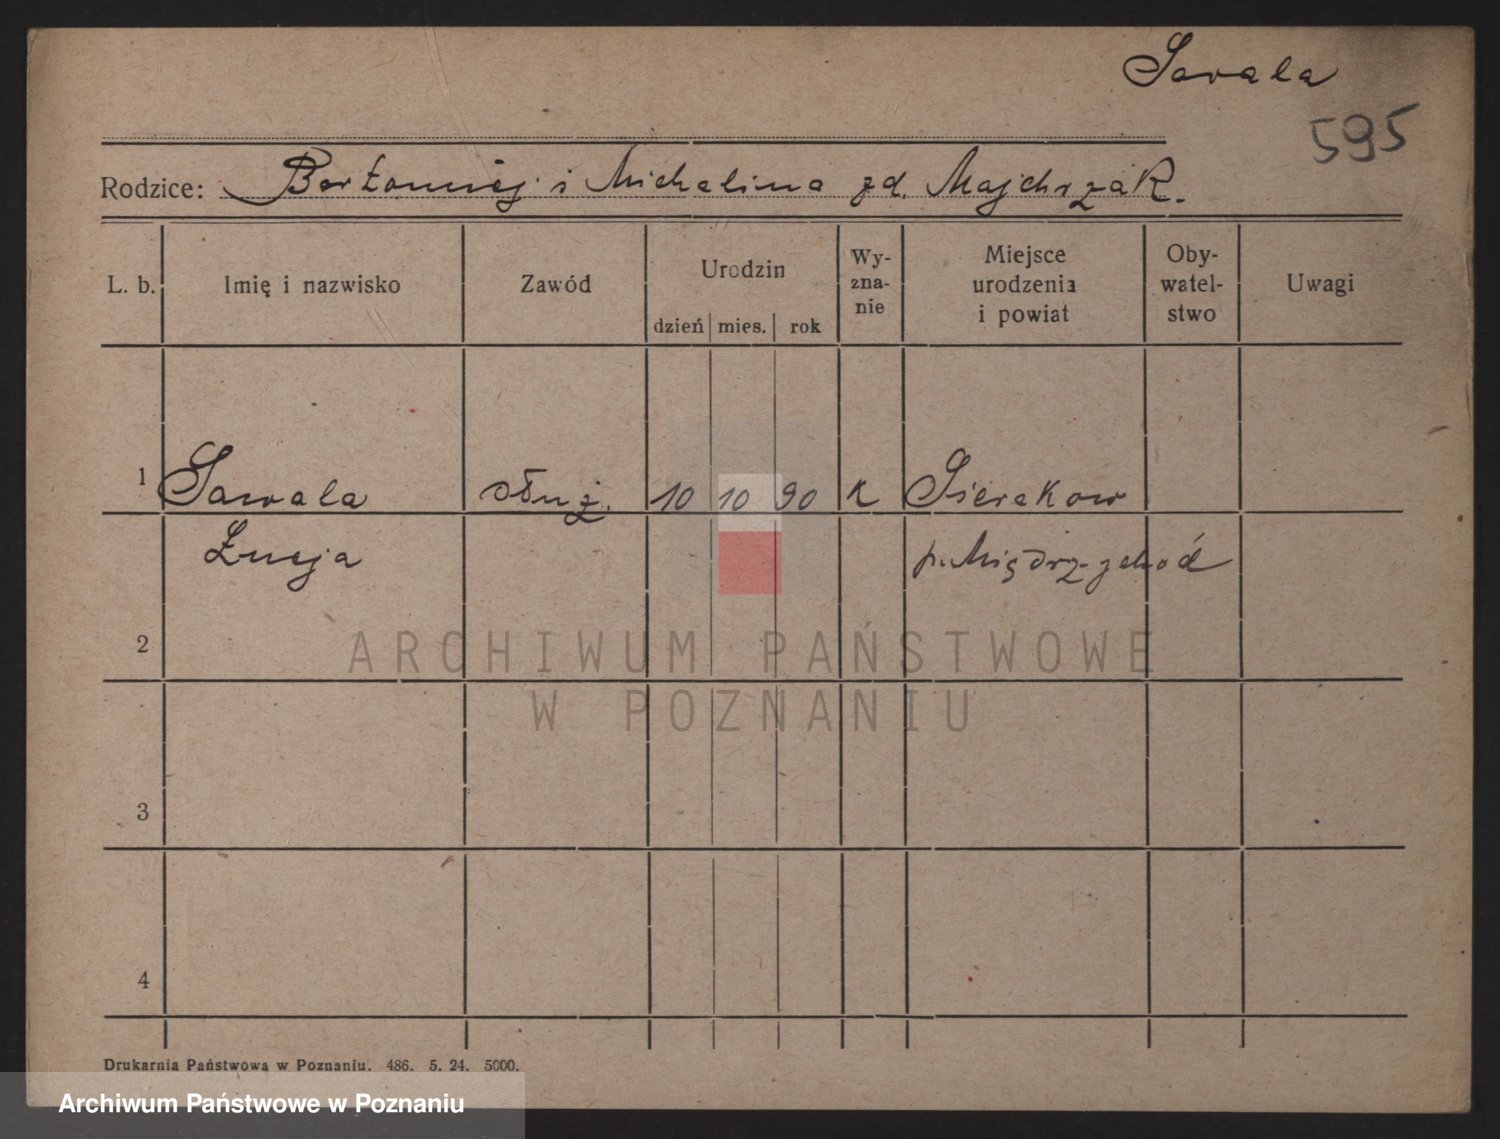 Sawala
595
Rodzice: Bartłomiej i Michalina zd. Majchrzak.
L. b. Imię i nazwisko Zawód Urodzin dzień mies. rok Wy-zna-nie Miejsce urodzenia i powiat Oby-watel-stwo Uwagi
1 Sawala służ. 10 10 90 k Sierakow
Łucja p. Międzychód
2
ARCHIWUM PAŃSTWOWE
W POZNANIU
3
4
Drukarnia Państwowa w Poznaniu. 486. 5. 24. 5000.
Archiwum Państwowe w Poznaniu